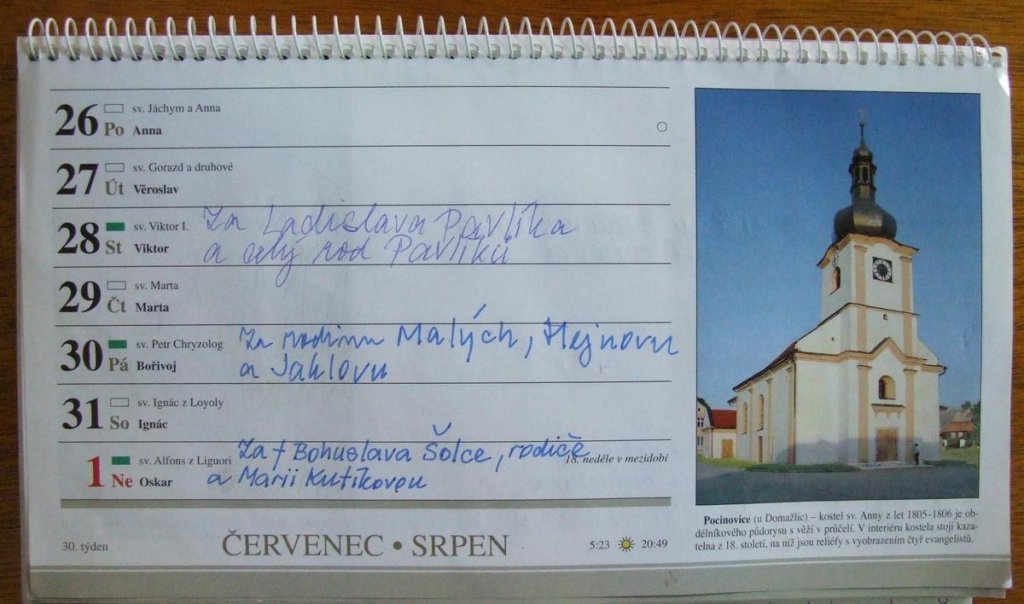 26 sv. Jáchym a Anna
Po Anna
27 sv. Gorazd a druhové
Út Věroslav
28 sv. Viktor I. Za Ladislava Pavlíka
St Viktor a celý rod Pavlíků
29 sv. Marta
Čt Marta
30 sv. Petr Chryzolog Za rodinu Malých, Hejnovu
Pá Bořivoj a Jahlovu
31 sv. Ignác z Loyoly
So Ignác
1 sv. Alfons z Liguori Za † Bohuslava Šolce, rodiče
18. neděle v mezidobí
Ne Oskar a Marii Kutíkovou
30. týden
ČERVENEC • SRPEN
5:23 20:49
Pocinovice (u Domažlic) – kostel sv. Anny z let 1805–1806 je ob-
délníkového půdorysu s věží v průčelí. V interiéru kostela stojí kaza-
telna z 18. století, na níž jsou reliéfy s vyobrazením čtyř evangelistů.